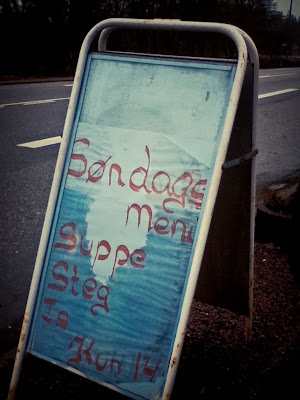 Søndags
menu
Suppe
Steg
Is
Kun 14